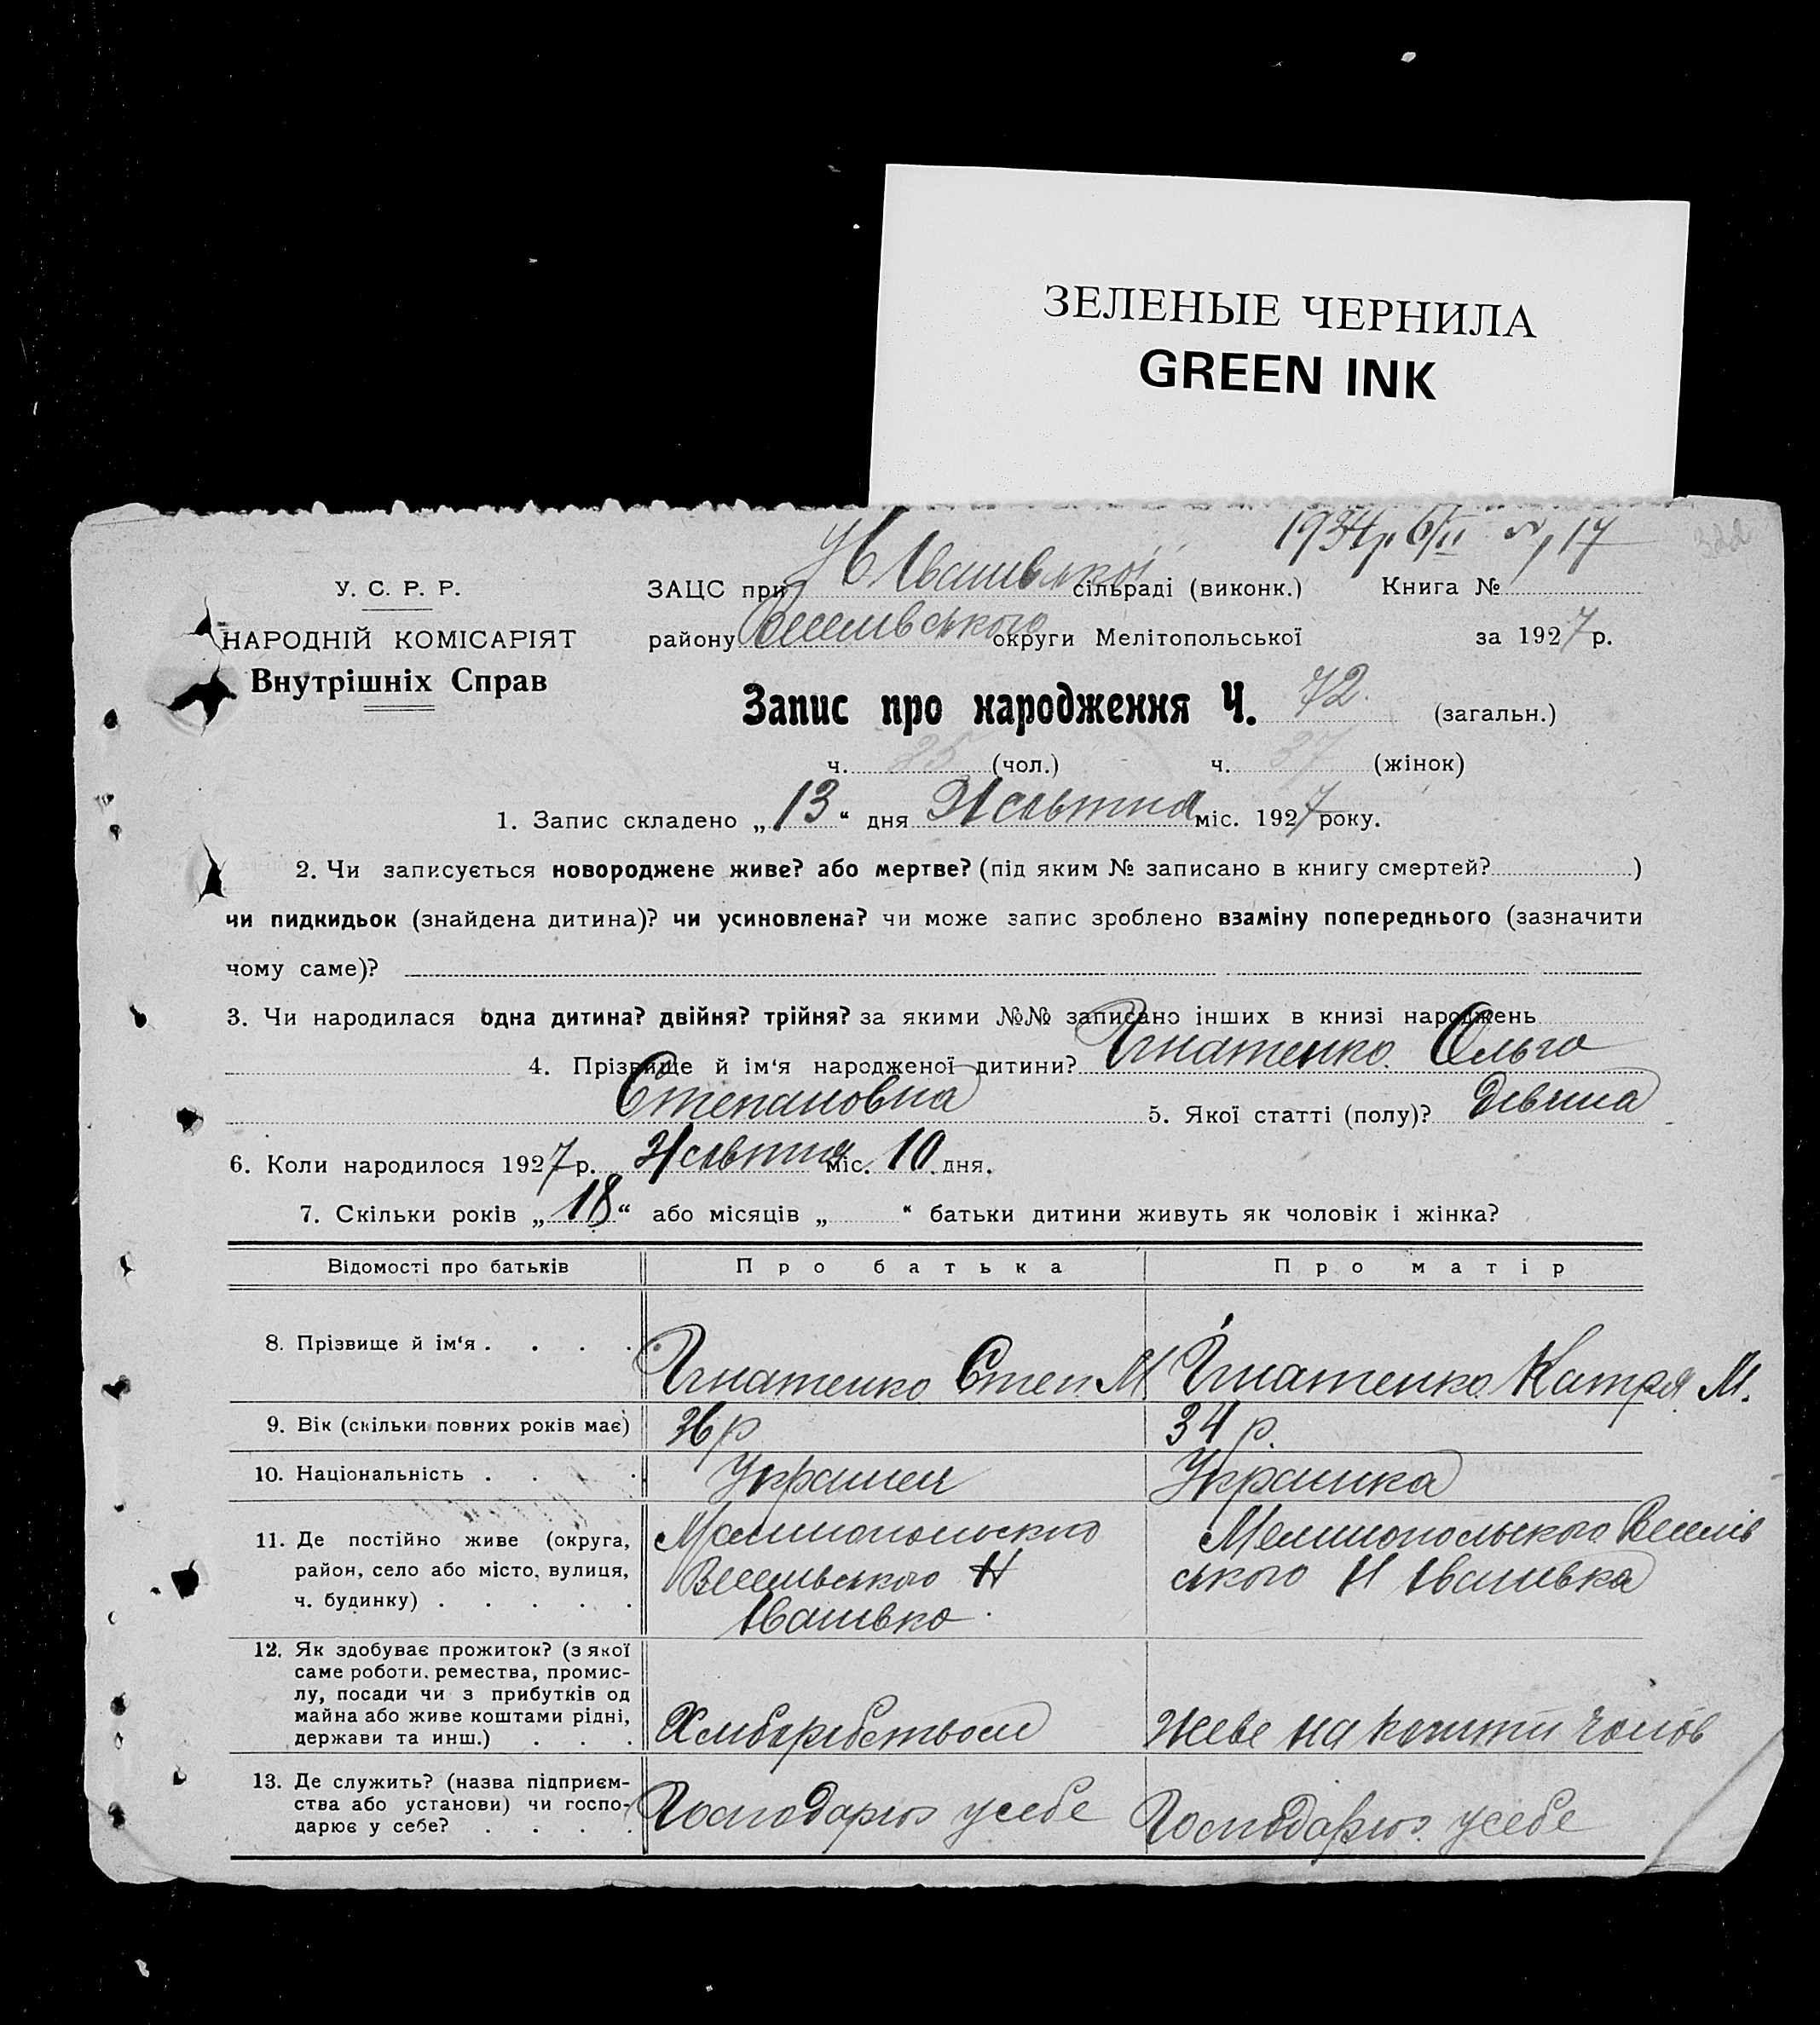 ЗЕЛЕНЫЕ ЧЕРНИЛА
GREEN INK
1934р. 6/II № 17
322
У. С. Р. Р.
НАРОДНІЙ КОМІСАРІЯТ
Внутрішніх Справ
ЗАЦС при Н Івашвської сільраді (виконк.) Книга №
району Веселівського округи Мелітопольської за 1927 р.
Запис про народження Ч. 72 (загальн.)
ч. 35 (чол.) ч. 37 (жінок)
1. Запис складено „13“ дня Жовтня міс. 1927 року.
2. Чи записується новороджене живе? або мертве? (під яким № записано в книгу смертей? )
чи пидкидьок (знайдена дитина)? чи усиновлена? чи може запис зроблено взаміну попереднього (зазначити
чому саме)?
3. Чи народилася одна дитина? двійня? трійня? за якими №№ записано інших в книзі народжень
4. Прізвище й ім‘я народженої дитини? Игнатенко Ольга
Степановна 5. Якої статті (полу)? Дівчина
6. Коли народилося 1927 р. Жовтня міс. 10 дня.
7. Скільки років „18“ або місяців „ “ батьки дитини живуть як чоловік і жінка?
Відомості про батьків Про батька Про матір
8. Прізвище й ім‘я . . . . Игнатенко Степ М Ігнатенко Катря М.
9. Вік (скільки повних років має) 36 р 34 р.
10. Національність . . . . Українец Українка
11. Де постійно живе (округа,
район, село або місто, вулиця,
ч. будинку) . . . . .
Мелитопольского
Веселивського Н
Івашвко.
Мелитопольского Веселів
ського Н Івашвка
12. Як здобуває прожиток? (з якої
саме роботи, ремества, промис-
лу, посади чи з прибутків од
майна або живе коштами рідні,
держави та инш.) . . .
Хлиборобством
Живе на кошти чолов
13. Де служить? (назва підприєм-
ства або установи) чи госпо-
дарює у себе? . . . .
Господарює у себе
Господарює у себе